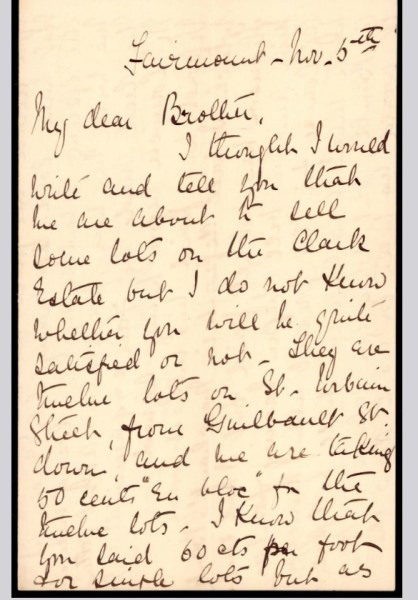 Fairmount - Nov. 5th
My dear Brother,
I thought I would
write and tell you that
we are about to sell
some lots on the Clark
Estate but I do not know
whether you will be quite
satisfied or not - They are
twelve lots on St. Urbain
Street, from Guilbault St.
down, and we are taking
50 cents "En bloc" for the
twelve lots. I know that
you said 60 cts per foot
for single lots but as